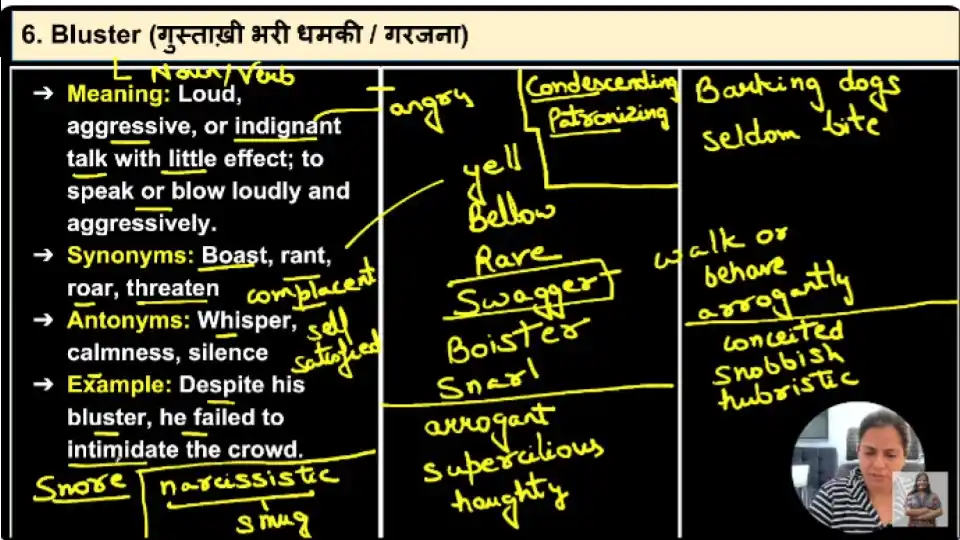 6. Bluster (गुस्ताख़ी भरी धमकी / गरजना)
Noun/Verb
➔ Meaning: Loud,
aggressive, or indignant
talk with little effect; to
speak or blow loudly and
aggressively.
➔ Synonyms: Boast, rant,
roar, threaten
➔ Antonyms: Whisper,
calmness, silence
➔ Example: Despite his
bluster, he failed to
intimidate the crowd.
complacent
self
satisfied
Snore
narcissistic
smug
angry
yell
Bellow
Rave
Swagger
Boister
Snarl
arrogant
supercilious
haughty
Condescending
Patronizing
Barking dogs
seldom bite
walk or
behave
arrogantly
conceited
snobbish
hubristic